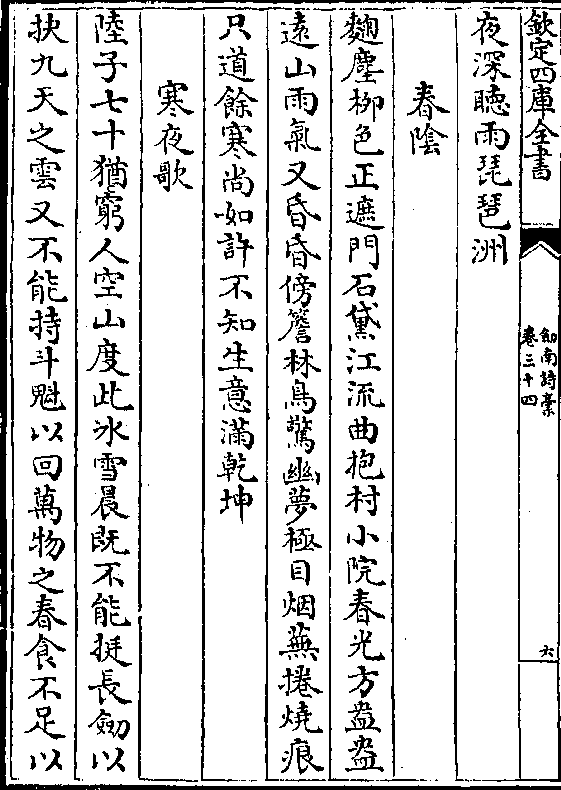 欽定四庫全書
劒南詩稾
卷三十四
六
夜深聽雨琵琶洲
春陰
麴塵栁色正遮門石黛江流曲抱村小院春光方盎盎
逺山雨氣又昏昏傍簷林鳥驚幽夢極目烟蕪捲燒痕
只道餘寒尚如許不知生意滿乾坤
寒夜歌
陸子七十猶窮人空山度此冰雪晨既不能挺長劒以
抉九天之雲又不能持斗魁以回萬物之春食不足以